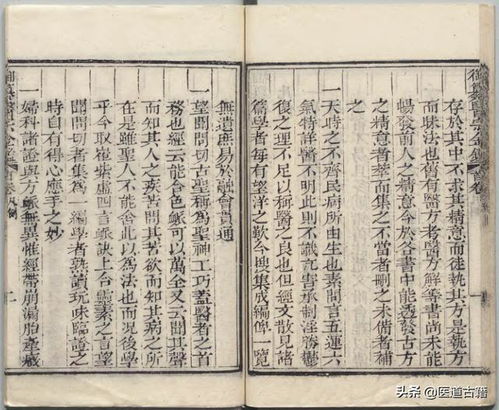 御纂醫宗金鑑
存於其中不求其精意而徒執其方是執方
而昧法也舊有醫方考醫方解等書尚未能
暢發前人之精意今於各書中能透發古方
之精意者萃而集之不當者刪之未備者補
之
一天時之不齊民病所由生也素問言五運六
氣特詳醫不明此則不識亢害承制淫勝鬱
復之理不足以稱醫之良也但經文散見諸
篇學者每有望洋之歎今搜集成編俾一覽
無遺庶易於融會貫通
一望聞問切古聖稱為聖神工巧蓋醫者之首
務也經云能合色脈可以萬全又云聞其聲
而知其人之疾苦問其苦欲而知其病之所
在是雖聖人不能舍此以為法也而況後學
乎今取崔紫虛四言脈訣上合靈素之言望
聞問切者集為一編學者熟讀玩味臨證之
時自有得心應手之妙
一婦科諸證與方脈無異惟經帶崩漏胎產癥
头条 @医道古籍